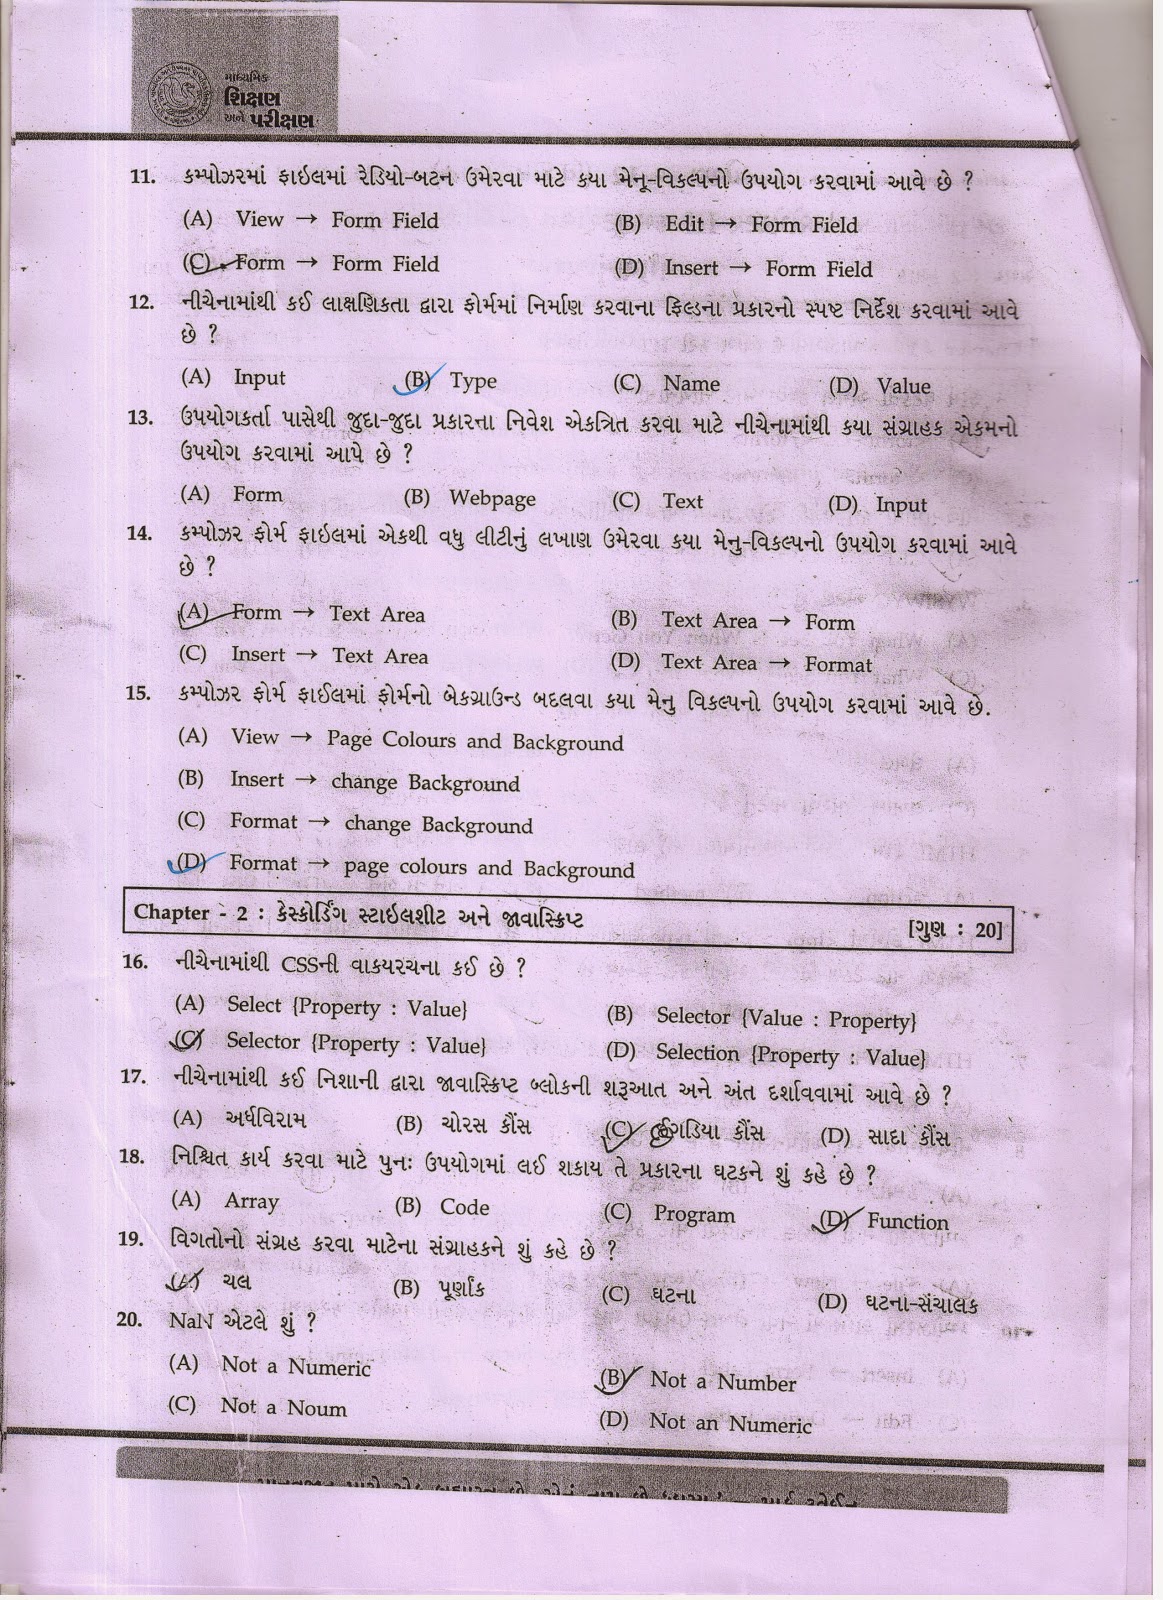 માધ્યમિક
શિક્ષણ
અને પરીક્ષણ
11. કમ્પોઝરમાં ફાઇલમાં રેડિયો-બટન ઉમેરવા માટે કયા મેનૂ-વિકલ્પનો ઉપયોગ કરવામાં આવે છે ?
(A) View → Form Field (B) Edit → Form Field
(C) Form → Form Field (D) Insert → Form Field
12. નીચેનામાંથી કઈ લાક્ષણિકતા દ્વારા ફોર્મમાં નિર્માણ કરવાના ફિલ્ડના પ્રકારનો સ્પષ્ટ નિર્દેશ કરવામાં આવે
છે ?
(A) Input (B) Type (C) Name (D) Value
13. ઉપયોગકર્તા પાસેથી જુદા-જુદા પ્રકારના નિવેશ એકત્રિત કરવા માટે નીચેનામાંથી કયા સંગ્રાહક એકમનો
ઉપયોગ કરવામાં આપે છે ?
(A) Form (B) Webpage (C) Text (D) Input
14. કમ્પોઝર ફોર્મ ફાઇલમાં એકથી વધુ લીટીનું લખાણ ઉમેરવા કયા મેનુ-વિકલ્પનો ઉપયોગ કરવામાં આવે
છે ?
(A) Form → Text Area (B) Text Area → Form
(C) Insert → Text Area (D) Text Area → Format
15. કમ્પોઝર ફોર્મ ફાઈલમાં ફોર્મનો બેકગ્રાઉન્ડ બદલવા કયા મેનુ વિકલ્પનો ઉપયોગ કરવામાં આવે છે.
(A) View → Page Colours and Background
(B) Insert → change Background
(C) Format → change Background
(D) Format → page colours and Background
Chapter - 2 : કેસ્કોર્ડિંગ સ્ટાઇલશીટ અને જાવાસ્ક્રિપ્ટ [ગુણ : 20]
16. નીચેનામાંથી CSSની વાકયરચના કઈ છે ?
(A) Select {Property : Value} (B) Selector {Value : Property}
(C) Selector {Property : Value} (D) Selection {Property : Value}
17. નીચેનામાંથી કઈ નિશાની દ્વારા જાવાસ્ક્રિપ્ટ બ્લોકની શરૂઆત અને અંત દર્શાવવામાં આવે છે ?
(A) અર્ધવિરામ (B) ચોરસ કૌંસ (C) છગડિયા કૌંસ (D) સાદા કૌંસ
18. નિશ્ચિત કાર્ય કરવા માટે પુનઃ ઉપયોગમાં લઈ શકાય તે પ્રકારના ઘટકને શું કહે છે ?
(A) Array (B) Code (C) Program (D) Function
19. વિગતોનો સંગ્રહ કરવા માટેના સંગ્રાહકને શું કહે છે ?
(A) ચલ (B) પૂર્ણાંક (C) ઘટના (D) ઘટના-સંચાલક
20. NaN એટલે શું ?
(A) Not a Numeric (B) Not a Number
(C) Not a Noum (D) Not an Numeric